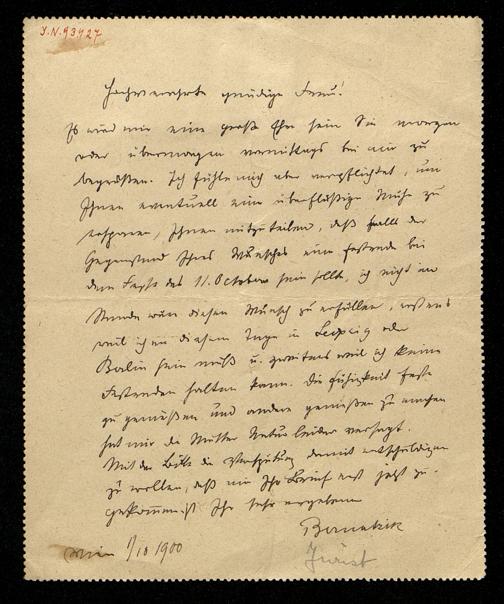 J.N. 93.927
Hochverehrte gnädige Frau!
Es wird mir eine große Ehre sein Sie morgen
oder übermorgen vormittags bei mir zu
begrüßen. Ich fühle mich aber verpflichtet, um
Ihnen eventuell eine überflüssige Mühe zu
ersparen, Ihnen mitzuteilen, daß falls der
Gegenstand Ihres Wunsches eine Festrede bei
dem Feste des 11. October sein sollte, ich nicht im
Stande wäre diesen Wunsch zu erfüllen, erstens
weil ich an diesem Tage in Leipzig oder
Berlin sein muß u. zweitens weil ich keine
Festreden halten kann. Die Fähigkeit Feste
zu genießen und andere genießen zu machen
hat mir die Mutter Natur leider versagt.
Mit der Bitte die Verspätung damit entschuldigen
zu wollen, daß mir Ihr Brief erst jetzt zu-
gekommen ist Ihr sehr ergebener
Bernatzik
Wien 9/10 1900
Jurist